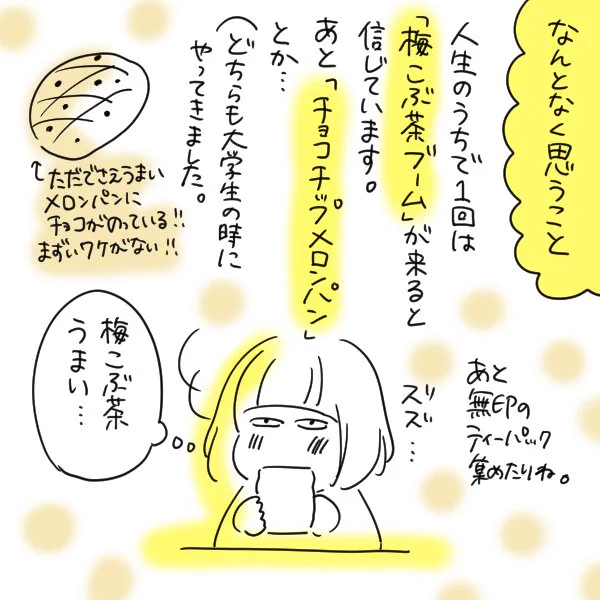 なんとなく思うこと
人生のうちで1回は
「梅こぶ茶ブーム」が来ると
信じています。
あと「チョコチップメロンパン」
とか…
(どちらも大学生の時に
やってきました。
↑ただでさえうまい
メロンパンに
チョコがのっている!!
まずいワケがない!!
梅こぶ茶
うまい…
ズズ…
あと
無EPの
ティーパック
集めたりね。